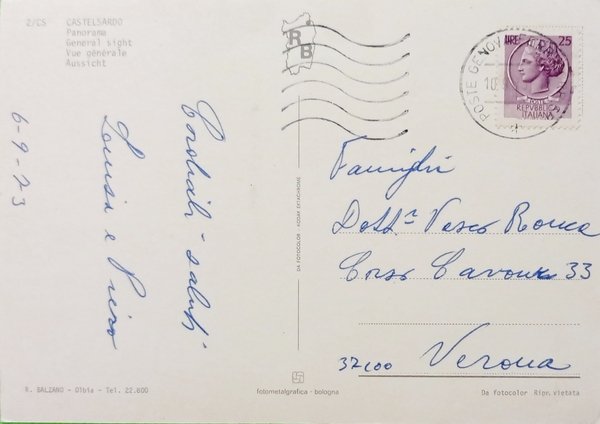 2/CS CASTELSARDO
Panorama
General sight
Vue générale
Aussicht
RB
Cordiali saluti
Luisa e Piero
6-9-73
DA FOTOCOLOR - KODAK EKTACHROME
POSTE GENOVA FERROVIA
10.
LIRE 25
POSTE
REPVBBLICA
ITALIANA
Famiglia
Dott.r Vasco Ronca
Corso Cavour 33
37100 Verona
R. BALZANO - Olbia - Tel. 22.800
fotometalgrafica - bologna
Da fotocolor Ripr. vietata